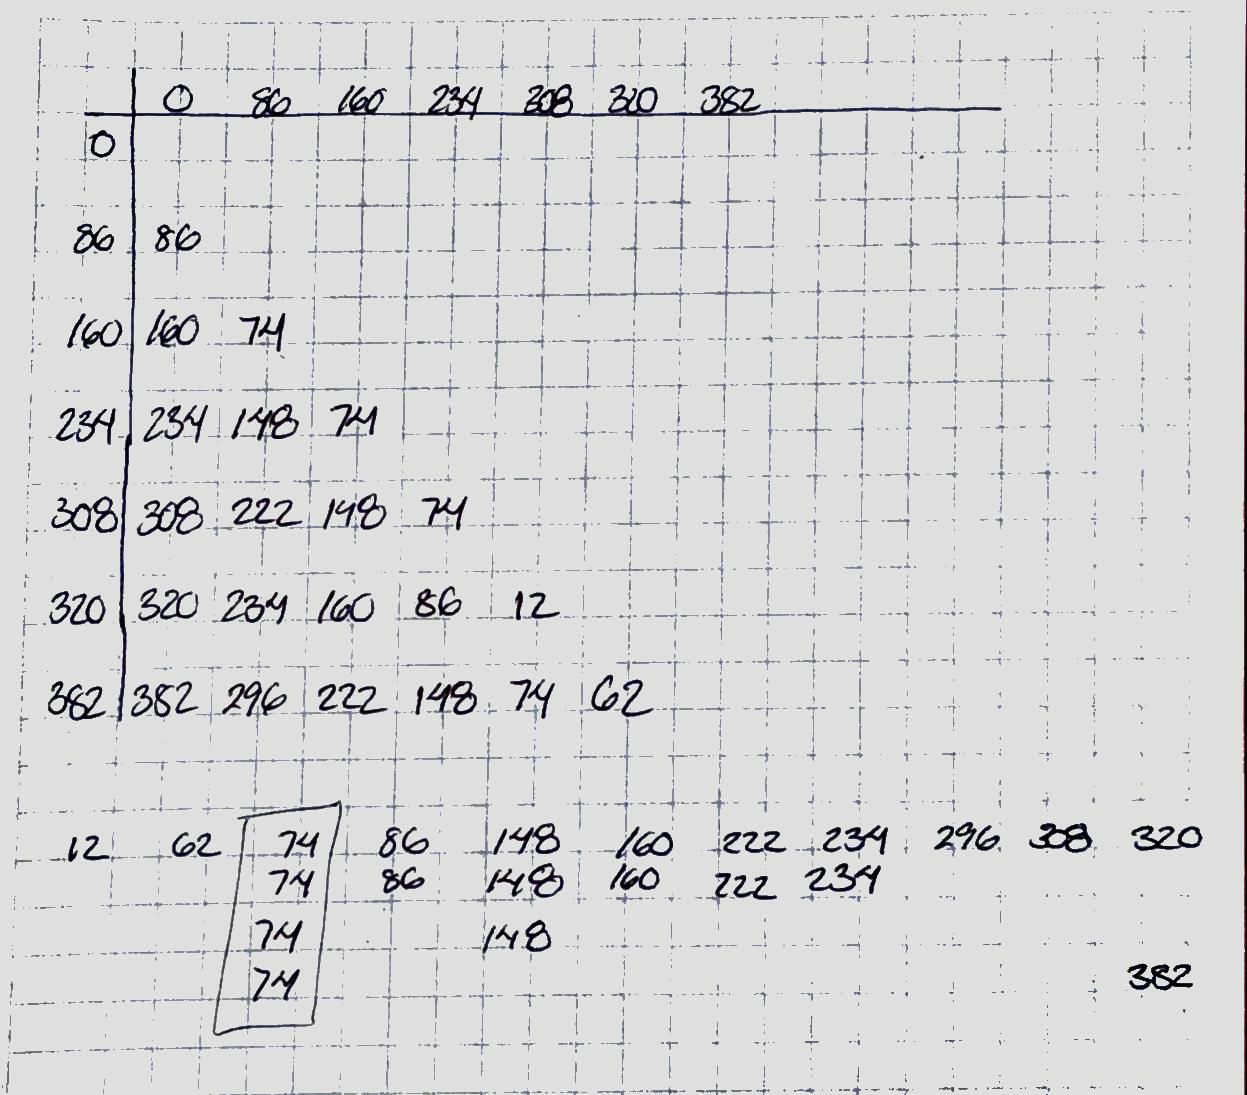 0 86 160 234 308 320 382
0
86 86
160 160 74
234 234 148 74
308 308 222 148 74
320 320 234 160 86 12
382 382 296 222 148 74 62
12 62 74 86 148 160 222 234 296 308 320
74 86 148 160 222 234
74 148
74 382